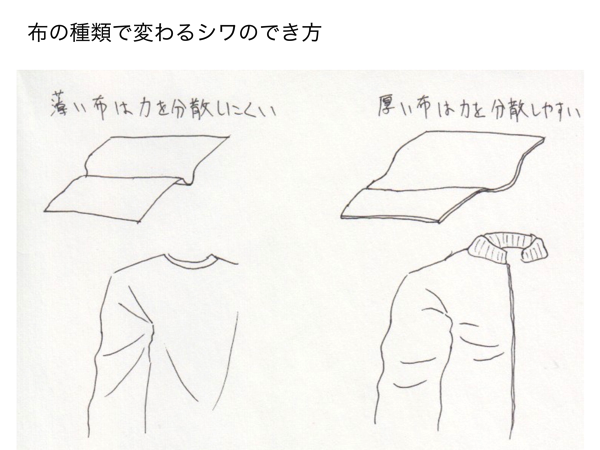 布の種類で変わるシワのでき方
薄い布は力を分散しにくい
厚い布は力を分散しやすい